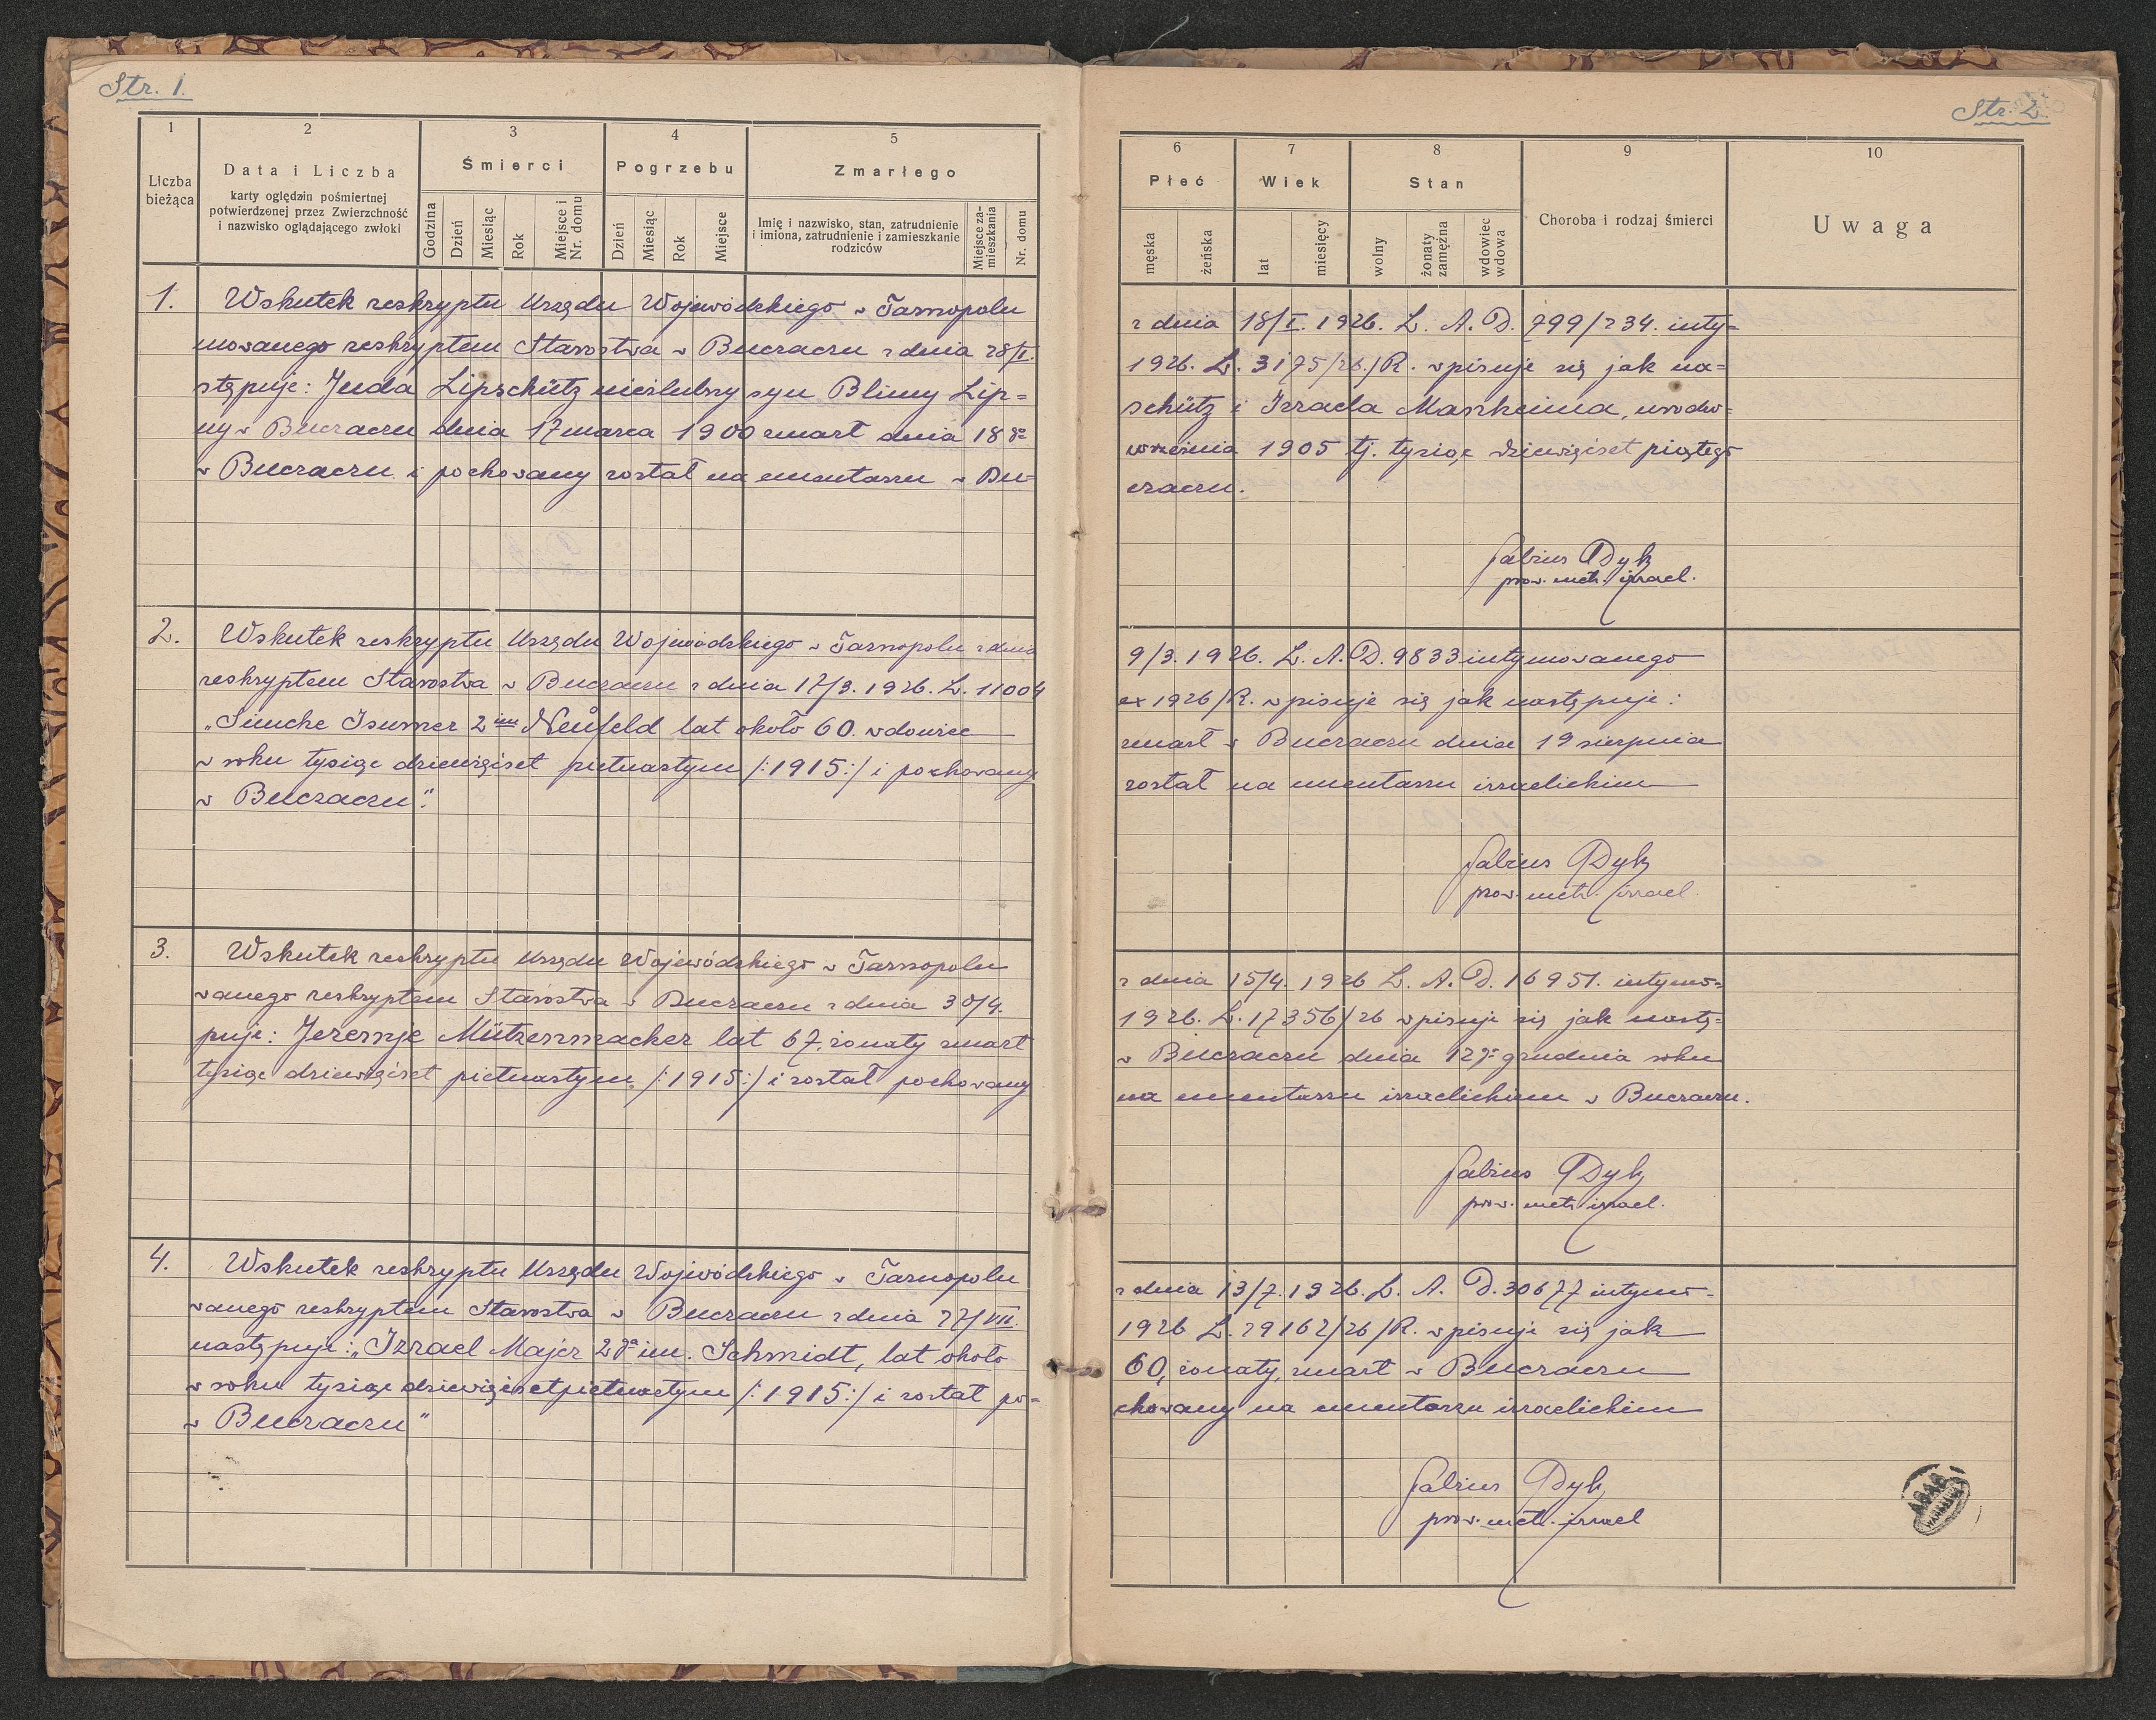 Str. 1.
1
2
3
4
5
Liczba bieżąca
Data i Liczba
karty oględzin pośmiertnej
potwierdzonej przez Zwierzchność
i nazwisko oglądającego zwłoki
Śmierci
Godzina
Dzień
Miesiąc
Rok
Miejsce i Nr. domu
Pogrzebu
Dzień
Miesiąc
Rok
Miejsce
Zmarłego
Imię i nazwisko, stan, zatrudnienie
i imiona, zatrudnienie i zamieszkanie
rodziców
Miejsce zamieszkania
Nr. domu
1. Wskutek reskryptu Urzędu Wojewódzkiego w Tarnopolu
mowanego reskryptem Starostwa w Buczaczu z dnia 28/I.
stępuje: Juda Lipschütz nieślubny syn Blimy Lip=
ny w Buczaczu dnia 17 marca 1900 zmarł dnia 18go
w Buczaczu i pochowany został na cmentarzu w Bu=
2. Wskutek reskryptu Urzędu Wojewódzkiego w Tarnopolu z dnia
reskryptem Starostwa w Buczaczu z dnia 17/3. 1926. L. 11004
„Simche Isumer 2im Neufeld lat około 60. wdowiec
w roku tysiąc dziewięćset pietnastym /:1915:/ i pochowany
w Buczaczu".
3. Wskutek reskryptu Urzędu Wojewódzkiego w Tarnopolu
wanego reskryptem Starostwa w Buczaczu z dnia 30/4.
puje: Jeremje Mützenmacher lat 67. żonaty zmarł
tysiąc dziewięćset pietnastym /:1915:/ i został pochowany
4. Wskutek reskryptu Urzędu Wojewódzkiego w Tarnopolu
wanego reskryptem Starostwa w Buczaczu z dnia 27/VII.
następuje: „Izrael Majer 2ga im. Schmidt, lat około
w roku tysiąc dziewięćset pietnastym /:1915:/ i został po=
w Buczaczu"
Str. 2.
6
7
8
9
10
Płeć
męska
żeńska
Wiek
lat
miesięcy
Stan
wolny
żonaty zamężna
wdowiec wdowa
Choroba i rodzaj śmierci
Uwaga
z dnia 18/I. 1926. L. A. D. 799/234. inty=
1926. L. 3175/26./R. wpisuje się jak na=
schütz i Izraela Mankeima, urodzo=
września 1905 tj. tysiąc dziewięćset piątego
czaczu.
Fabius Dyk
prow. metr. izrael.
9/3. 1926. L. A. D. 9833 intymowanego
ex 1926/R. wpisuje się jak następuje:
zmarł w Buczaczu dnia 19 sierpnia
został na cmentarzu izraelickim
Fabius Dyk
prow. metr. izrael.
z dnia 15/4. 1926 L. A. D. 16951. intymo=
1926. L. 17356/26 wpisuje się jak nastę=
w Buczaczu dnia 12go grudnia roku
na cmentarzu izraelickim w Buczaczu.
Fabius Dyk
prow. metr. izrael.
z dnia 13/7. 1926. L. A. D. 30677 intymo=
1926 L. 29162/26/R. wpisuje się jak
60, żonaty, zmarł w Buczaczu
chowany na cmentarzu izraelickim
Fabius Dyk
prow. metr. izrael
AGAD